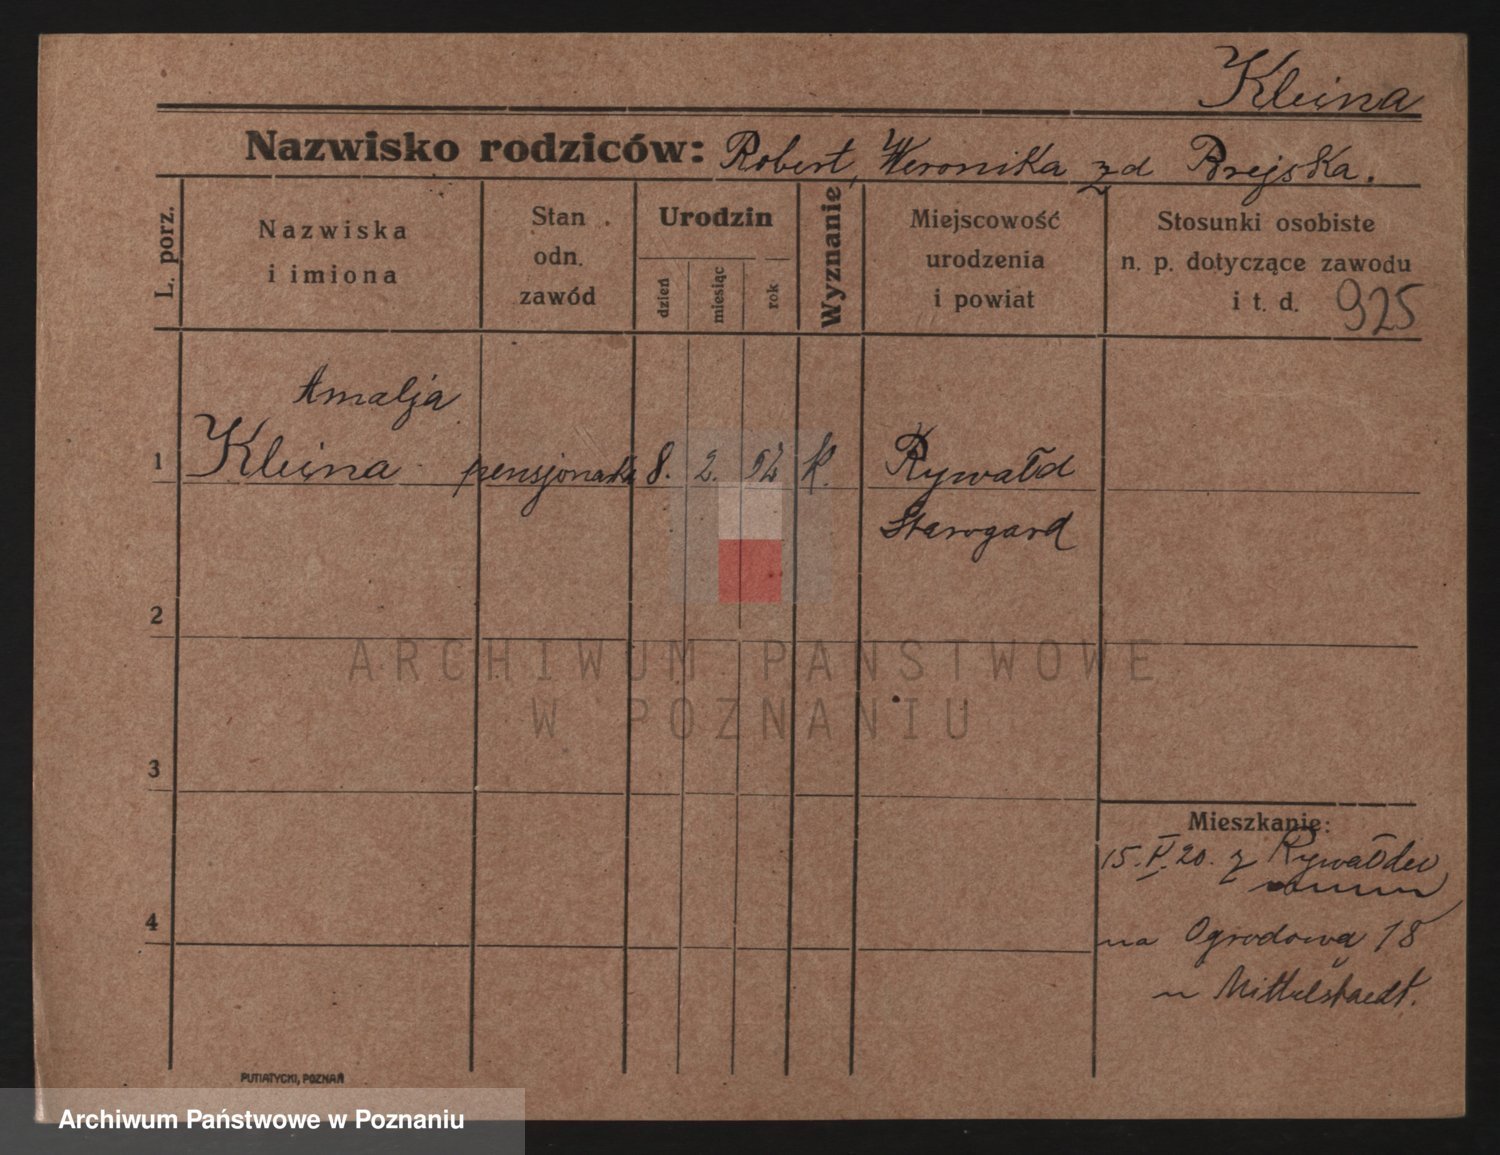 Kleina
Nazwisko rodziców: Robert, Weronika zd Brejska.
L. porz.
Nazwiska
i imiona
Stan
odn.
zawód
Urodzin
dzień
miesiąc
rok
Wyznanie
Miejscowość
urodzenia
i powiat
Stosunki osobiste
n. p. dotyczące zawodu
i t. d. 925
Amalja
1 Kleina pensjonatka 8. 2. 52 K. Rywałd
Starogard
2
3
4
Mieszkanie:
15.V.20. z Rywałdu
na Ogrodową 18
u Mittelstaedt.
PUTIATYCKI, POZNAŃ
ARCHIWUM PAŃSTWOWE
W POZNANIU
Archiwum Państwowe w Poznaniu